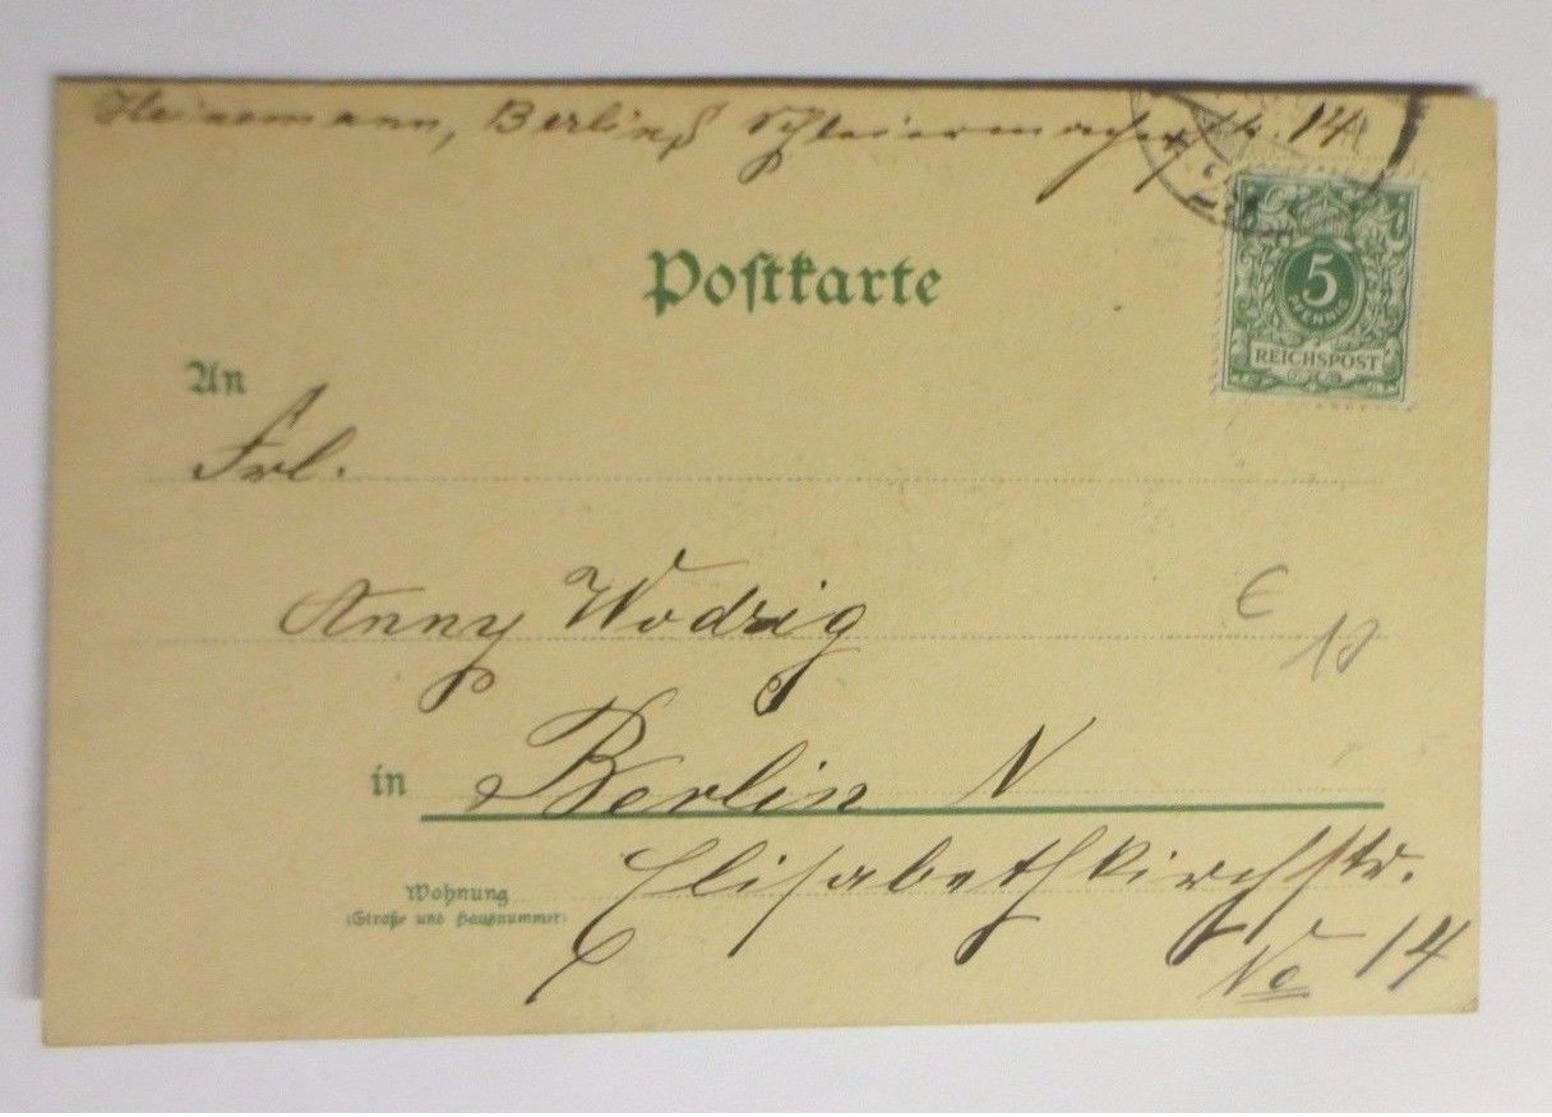 Heinemann, Berlin S Schleiermacherstr. 14
Postkarte
5
PFENNIG
REICHSPOST
An
Frl.
Anny Wodrig
in Berlin N
Wohnung Elisabethkirchstr.
(Straße und Hausnummer)
No 14
€
10